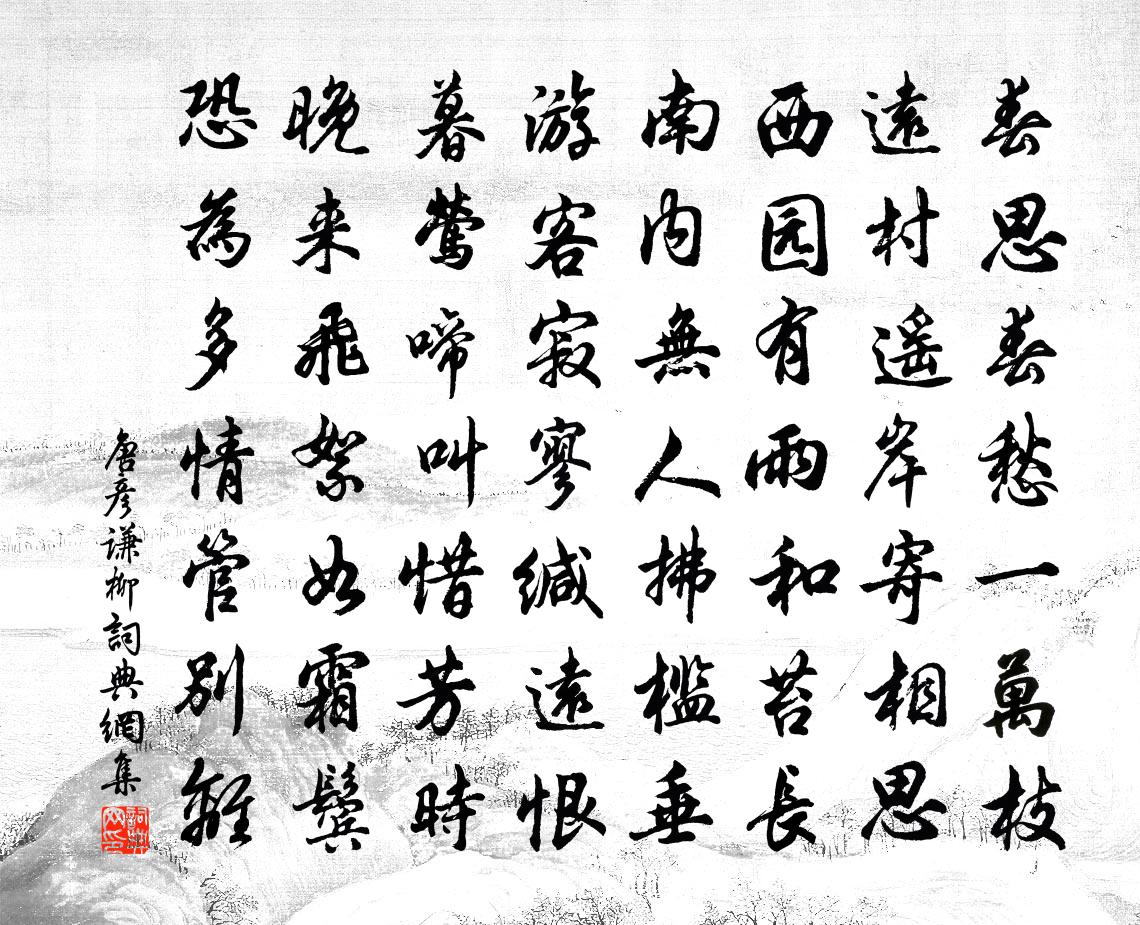 春思春愁一萬枝
遠村遥岸寄相思
西园有雨和苔長
南内無人拂檻垂
游客寂寥缄遠恨
暮莺啼叫惜芳時
晚来飛絮如霜鬢
恐為多情管别離
唐彦谦柳詞典網集